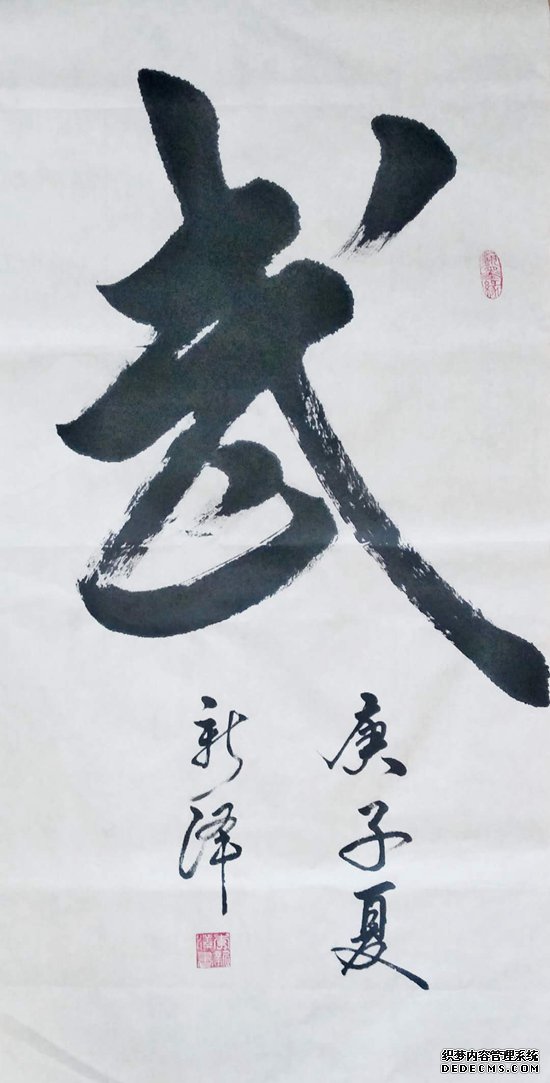 武
庚子夏
新泽
织梦内容管理系统
DEDECMS.COM